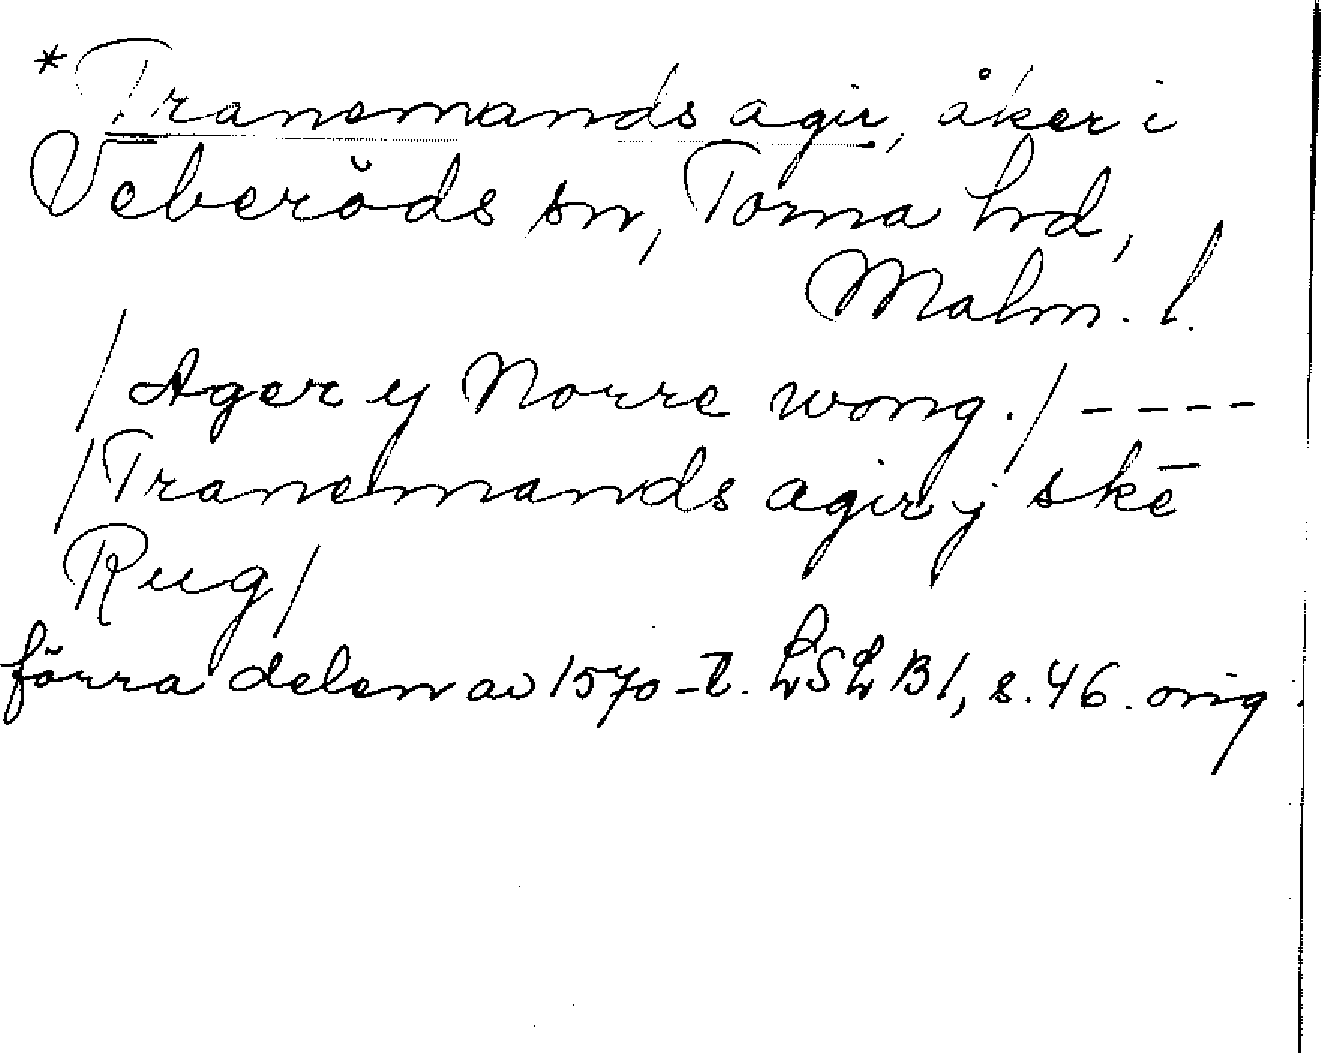 *Tranemands agir, åker i
Veberöds sn, Torna hd,
Malm. l.
/Ager y Norre wong./ ----
/Tranemands agir y skē
Rug/
förra delen av 1570-t. LSLB 1, s. 46. orig.